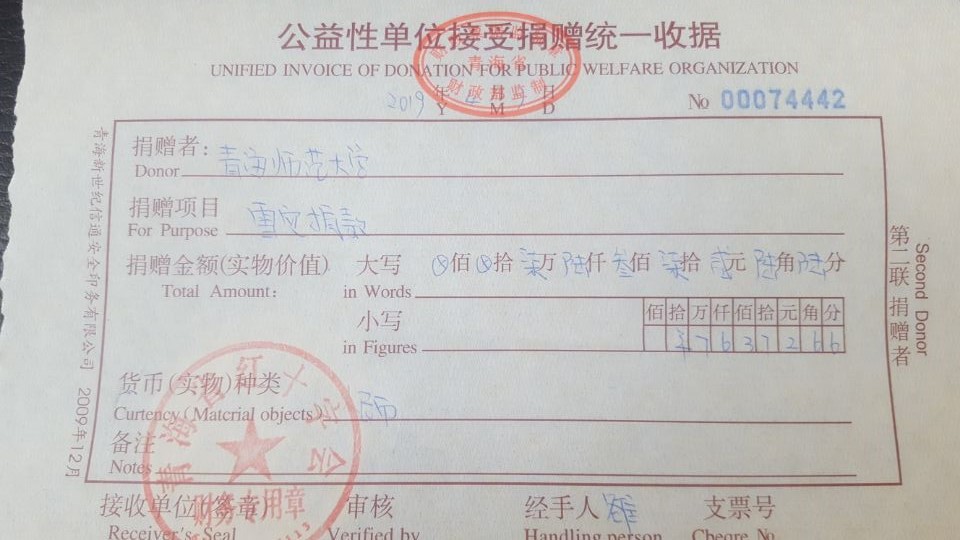 公益性单位接受捐赠统一收据
UNIFIED INVOICE OF DONATION FOR PUBLIC WELFARE ORGANIZATION
青海省
财政部监制
2019 年 月 日
Y M D
No 00074442
捐赠者: 青海师范大学
Donor
捐赠项目 雪灾捐款
For Purpose
捐赠金额(实物价值) 大写 ⊗佰⊗拾柒万陆仟叁佰柒拾贰元陆角陆分
Total Amount: in Words
小写 佰拾万仟佰拾元角分
in Figures ¥ 7 6 3 7 2 6 6
货币(实物)种类
Curtency (Matcrial objects)
备注
Notes
接收单位(签章) 审核 经手人 支票号
Receiver's Seal Verified by Handling person Cheque No
青海省红十字会
财务专用章
第二联 捐赠者
Second Donor
青海新世纪信通安全印务有限公司 2009年12月